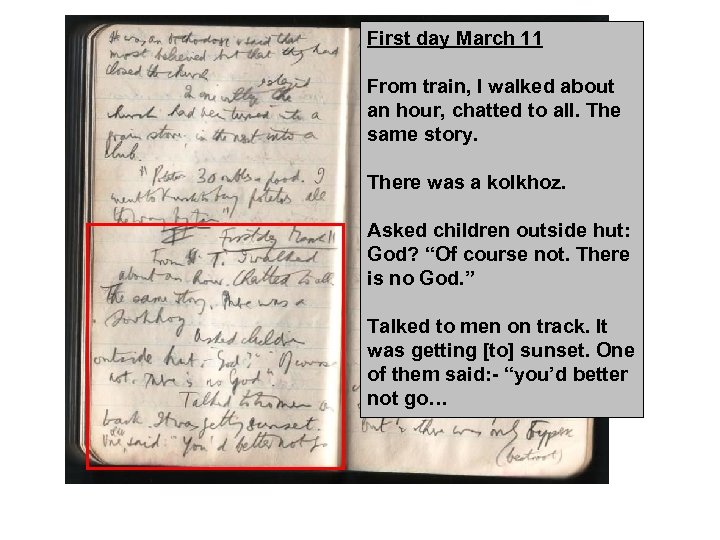 He was an orthodox & said that
most believed but that they had
closed the church
In one village the
church had been turned into a
grain store, in the next into a
club.
30 roubles a pood. I
went to to buy potatoes all
the way
First day March 11
From T. I walked
about an hour. Chatted to all.
The same story. There was a
Asked children
outside hut:- God? "Of course
not. There is no God".
Talked to men on
track. It was getting sunset.
One said:- "You'd better not go
but there was only
(beetroot)
First day March 11
From train, I walked about
an hour, chatted to all. The
same story.
There was a kolkhoz.
Asked children outside hut:
God? “Of course not. There
is no God.”
Talked to men on track. It
was getting [to] sunset. One
of them said: - “you’d better
not go…